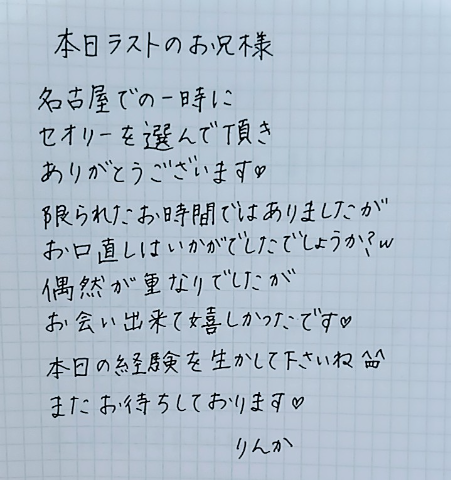 本日ラストのお兄様
名古屋での一時に
セオリーを選んで頂き
ありがとうございます♡
限られたお時間ではありましたが
お口直しはいかがでしたでしょうか?w
偶然が重なりでしたが
お会い出来て嬉しかったです♡
本日の経験を生かして下さいね ^^
またお待ちしております♡
りんか